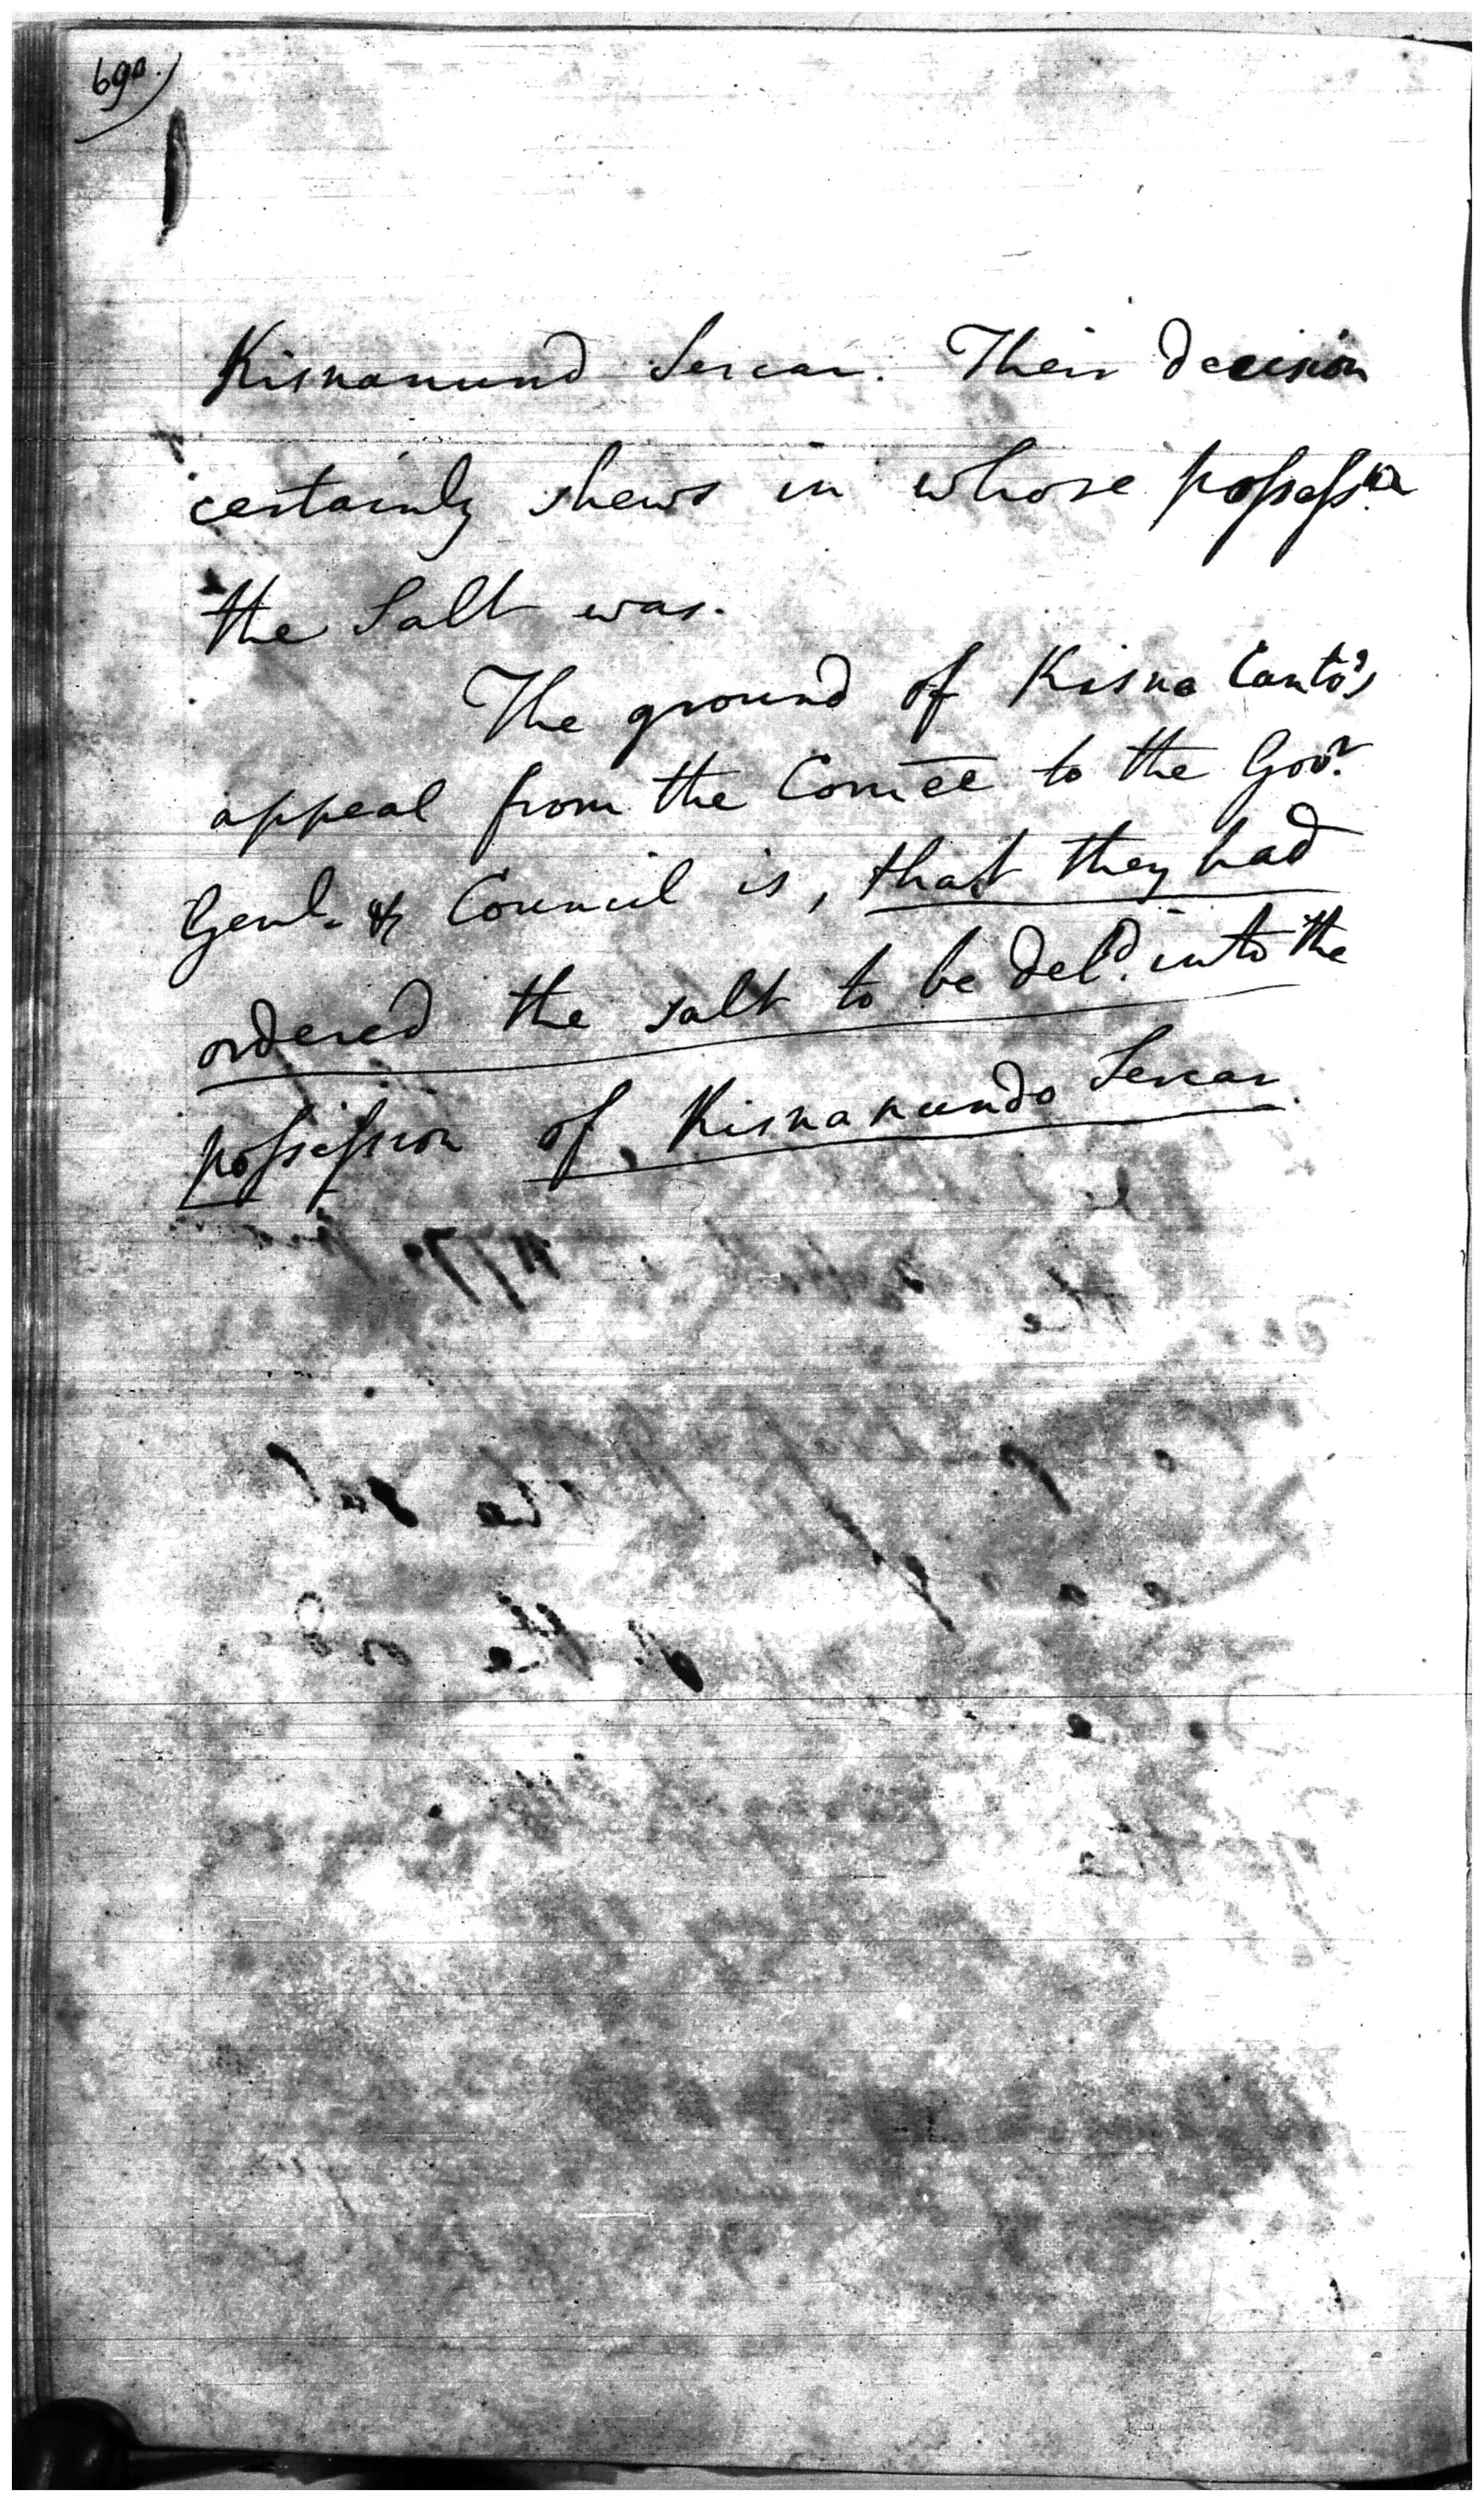 69a.)
Kisnanund Sercar. Their decision
certainly shews in whose possessn.
the Salt was.
The ground of Kisna Canto's
appeal from the Comēē to the Govr.
Genl. & Council is, that they had
ordered the salt to be deld. into the
possession of Kisnanundo Sercar